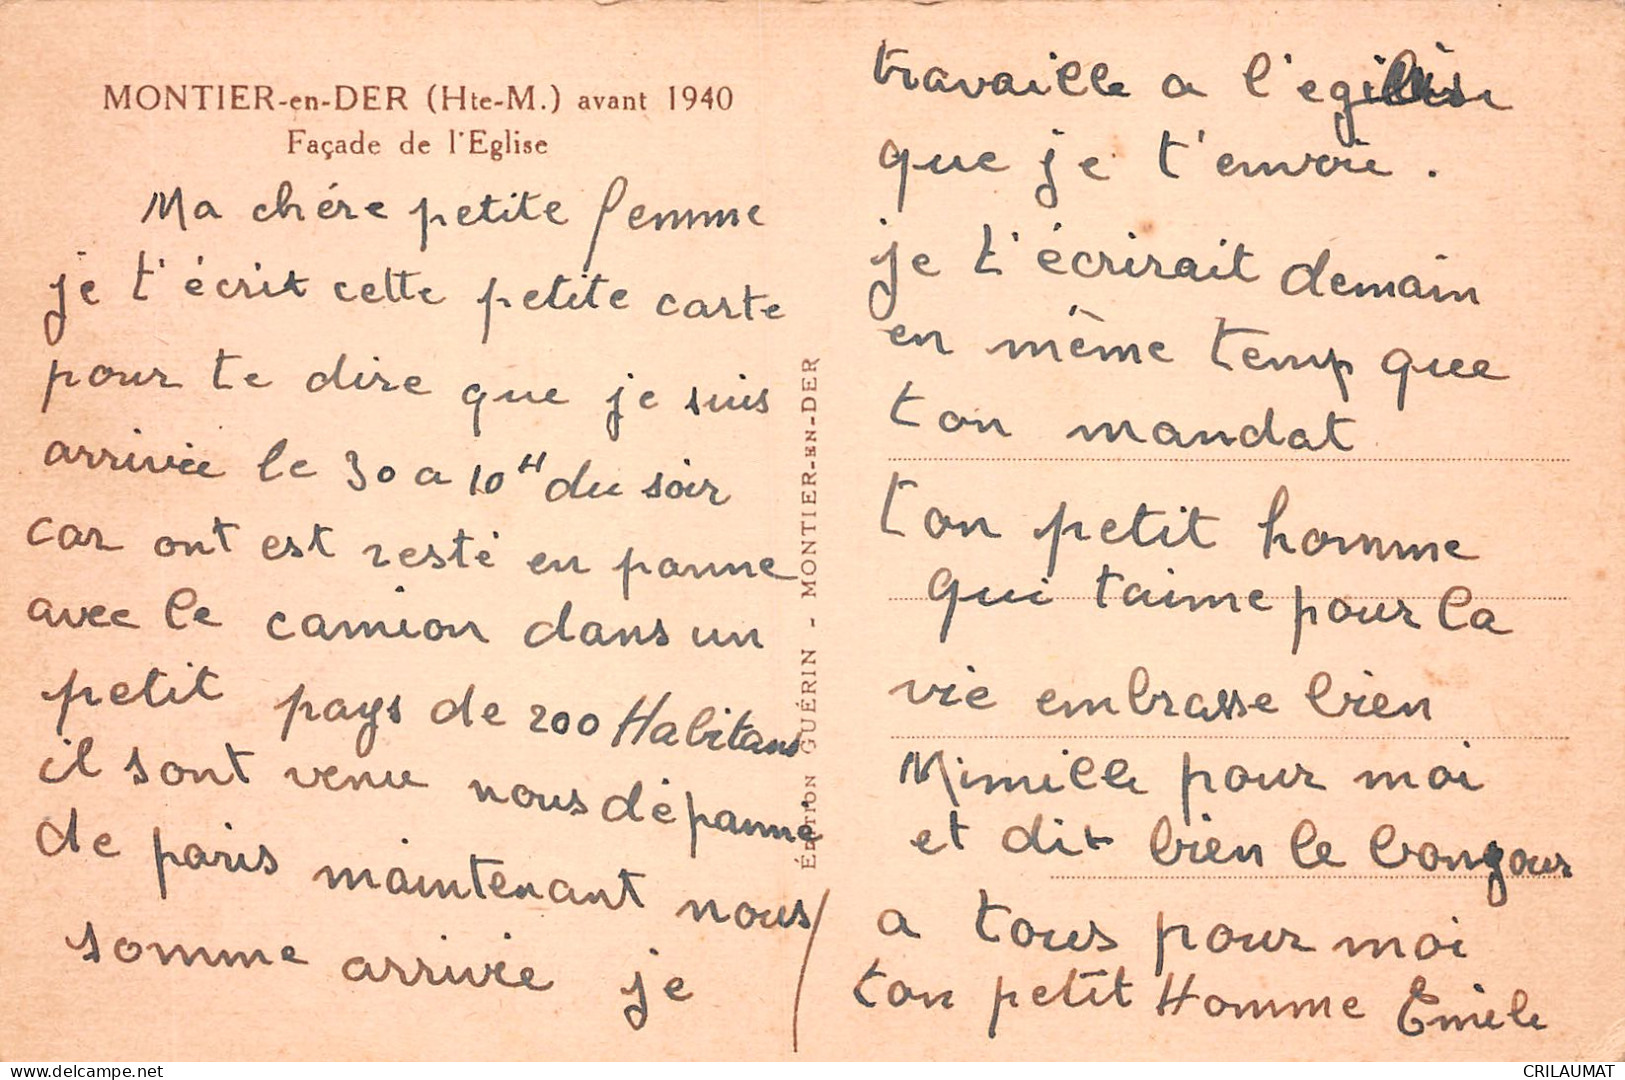 MONTIER-en-DER (Hte-M.) avant 1940
Façade de l'Eglise
Ma chére petite femme
je t'écrit cette petite carte
pour te dire que je suis
arrivée le 30 a 10H du soir
car ont est resté en panne
avec le camion dans un
petit pays de 200 Habitans
il sont venu nous dépanné
de paris maintenant nous
somme arrivée je
ÉDITION GUÉRIN - MONTIER-EN-DER
travaille a l'eglise
que je t'envoie.
je t'écrirait demain
en même temp que
ton mandat
ton petit homme
qui taime pour la
vie embrasse bien
Mimille pour moi
et dit bien le bongour
a tous pour moi
ton petit Homme Emile
delcampe.net
CRILAUMAT